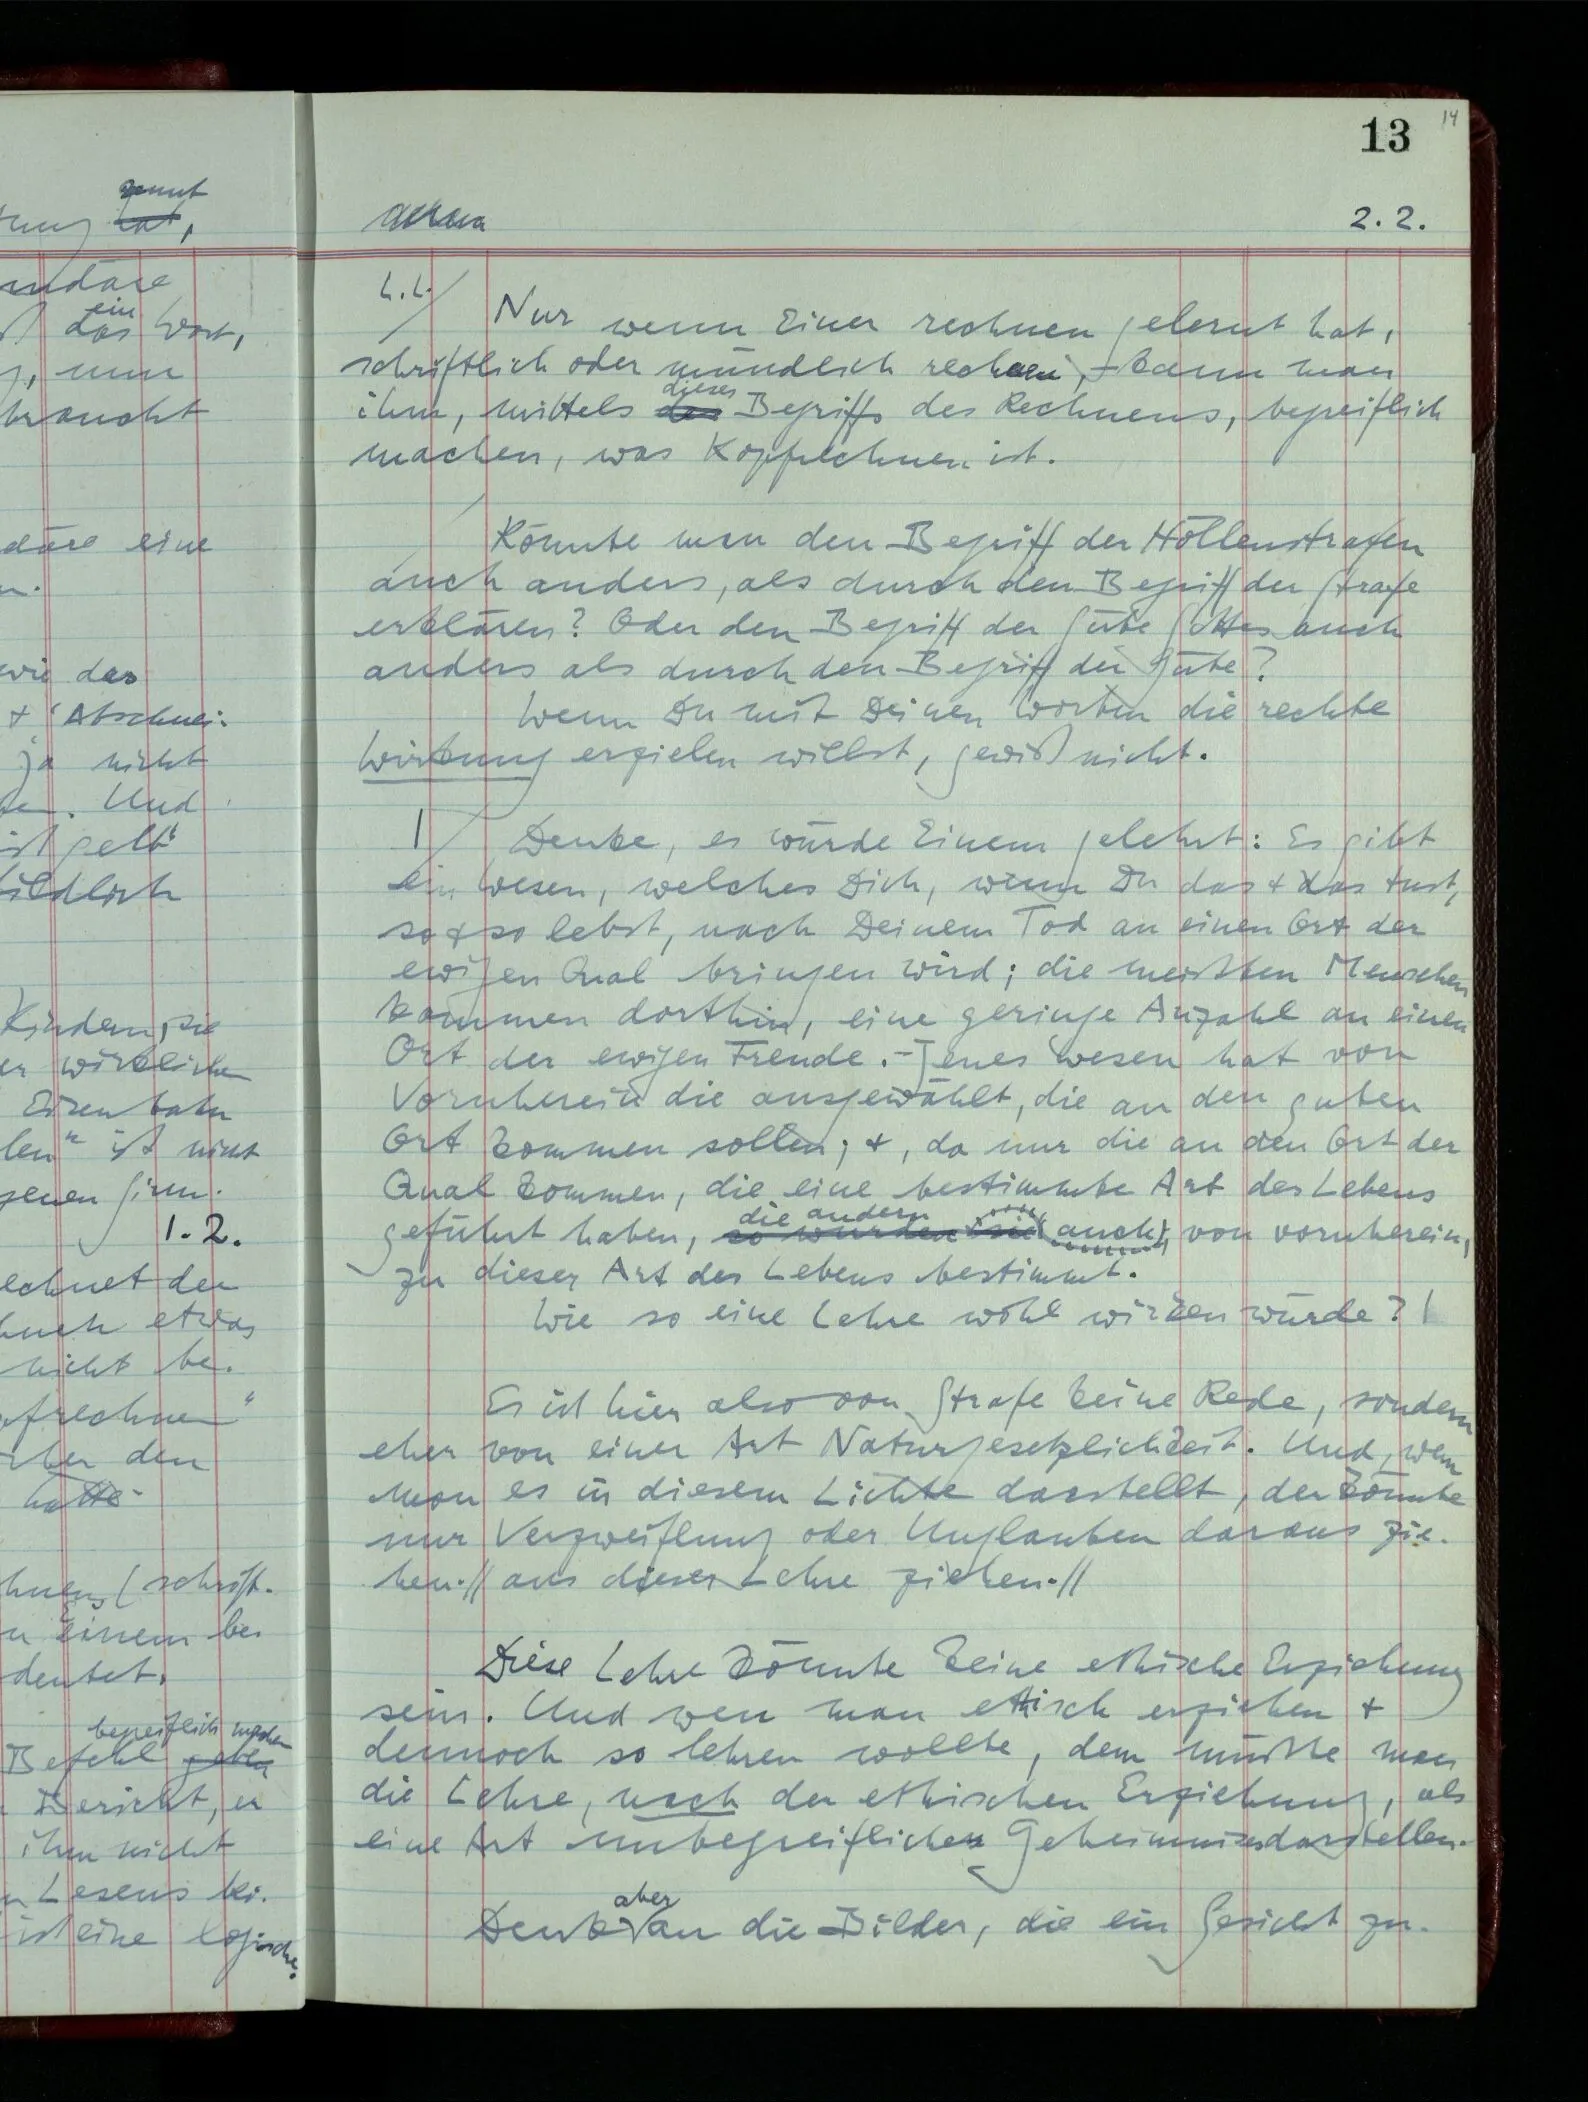 13
14
2.2.
Nur wenn Einer rechnen gelernt hat,
schriftlich oder mündlich rechnen, – kann man
ihm, mittels des dieses Begriffs des Rechnens, begreiflich
machen, was Kopfrechnen ist.
Könnte man den Begriff der Höllenstrafen
auch anders, als durch den Begriff der Strafe
erklären? Oder den Begriff der Güte Gottes auch
anders als durch den Begriff der Güte?
Wenn Du mit Deinen Worten die rechte
Wirkung erzielen willst, gewiß nicht.
Denke, es würde Einem gelehrt: Es gibt
ein Wesen, welches Dich, wenn Du das + das tust,
so + so lebst, nach Deinem Tod an einen Ort der
ewigen Qual bringen wird; die meisten Menschen
kommen dorthin, eine geringe Anzahl an einen
Ort der ewigen Freude. – Jenes Wesen hat von
Vornherein die ausgewählt, die an den guten
Ort kommen sollen; +, da nur die an den Ort der
Qual kommen, die eine bestimmte Art des Lebens
die andern
geführt haben, so wurden sie auch, von vornherein,
zu dieser Art des Lebens bestimmt.
Wie so eine Lehre wohl wirken würde? |
Es ist hier also von Strafe keine Rede, sondern
eher von einer Art Naturgesetzlichkeit. Und, wem
man es in diesem Lichte darstellt, der könnte
nur Verzweiflung oder Unglauben daraus zie-
hen. // aus dieser Lehre ziehen. //
Diese Lehre könnte keine ethische Erziehung
sein. Und wen man ethisch erziehen +
dennoch so lehren wollte, dem müßte man
die Lehre, nach der ethischen Erziehung, als
eine Art unbegreiflichen Geheimnisses darstellen.
aber
Denke an die Bilder, die ein Gesicht zu-
zunut
hat,
ein
das Wort,
nun
braucht
eine
wie das
+ 'Abschnei-
ja nicht
Und
ist gelb"
bildlich
Kindern, sie
er wirkliche
Eisenbahn
ist nicht
1.2.
rechnet den
auch etwas
nicht be-
frechnen"
den
hatte
(schrift-
Einem bei
deutet.
begreiflich machen
Befehl geben
Bericht, er
ihm nicht
Lesens bei-
ist eine logische